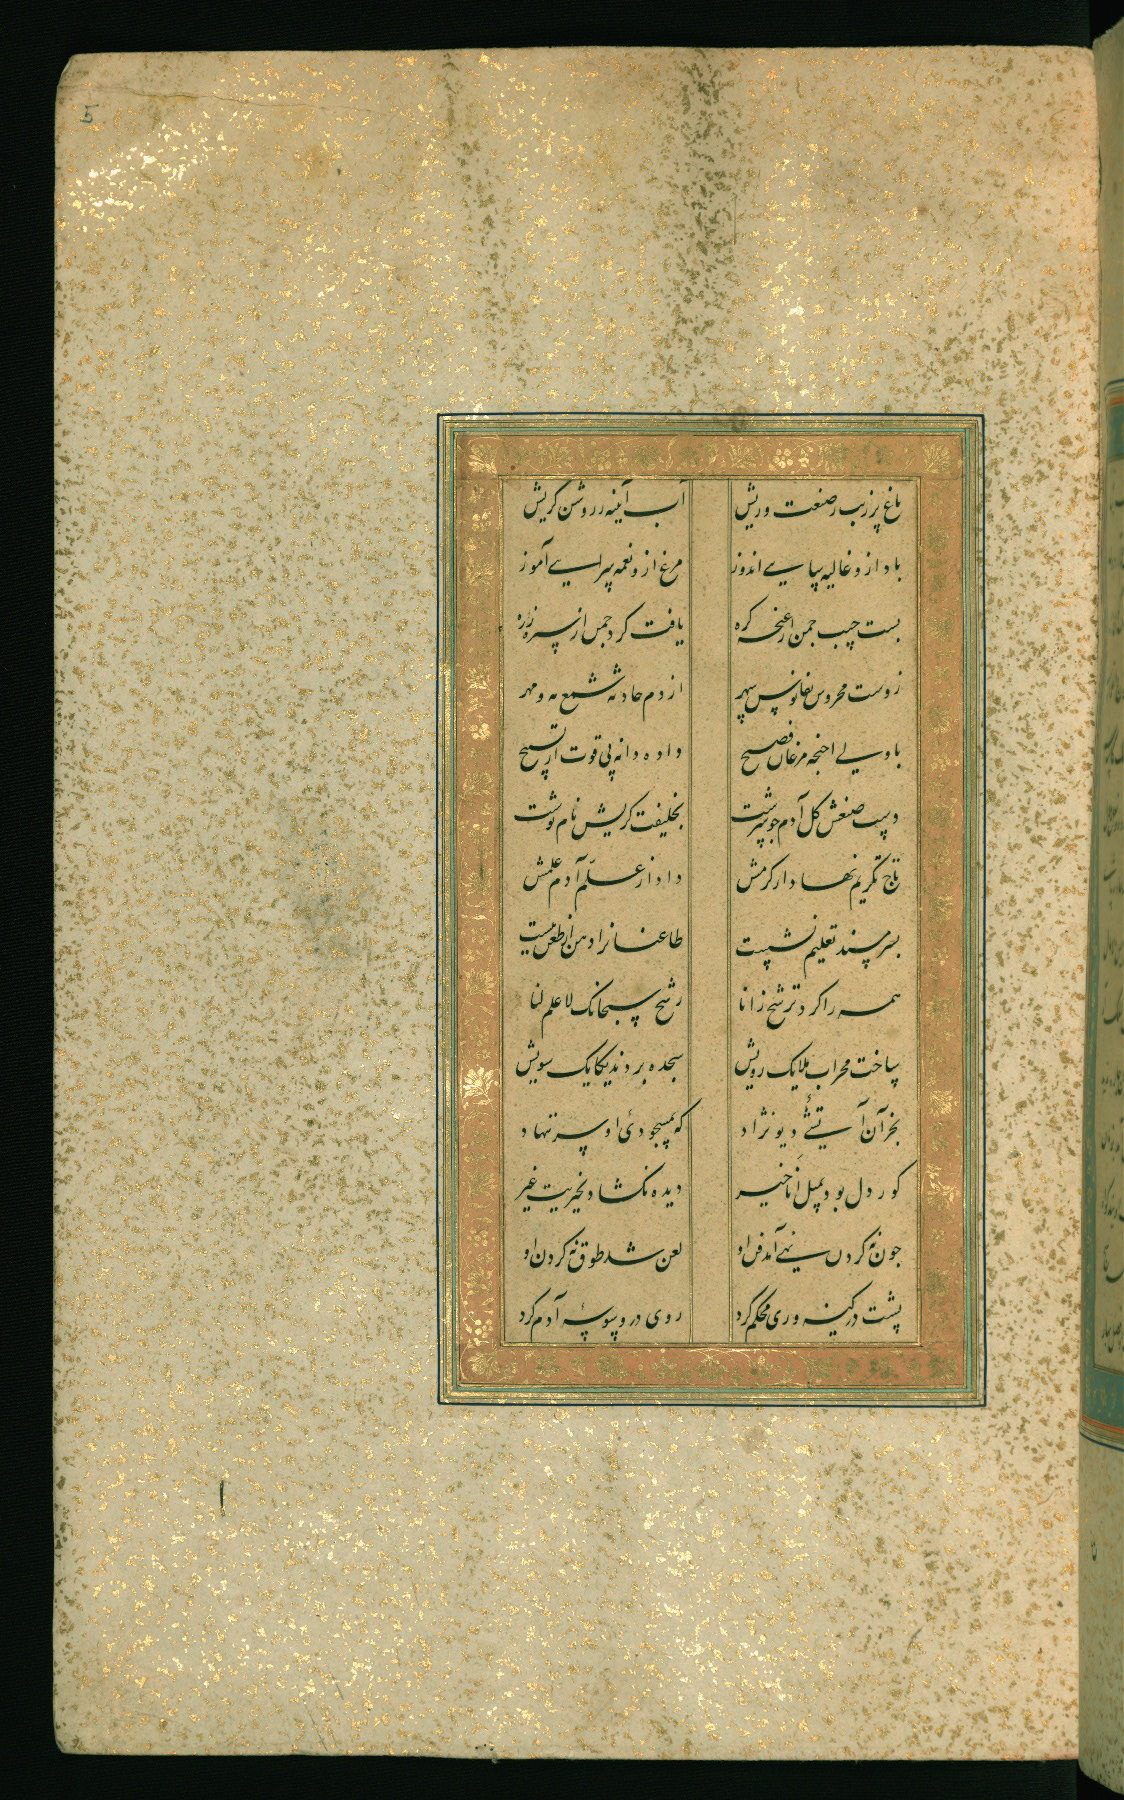 5
باغ پر زیب ز صنعت وریش آب آینه ز روشن گریش
باد ازو غالیه سایی اندوز مرغ ازو نغمه سرایی آموز
بست جیب چمن از غنچه گره یافت گرد چمن از سبزه زره
زوست محروس بفانوس سپهر از دم حادثه شمع مه و مهر
مرغان فصیح داده دانه پی قوت از تسبیح
دست صنعش گل آدم چو سرشت بخلیفت گریش نام نوشت
تاج تکریم نهاد از کرمش داد از علّم آدم علمش
بسر مسند تعلیم نشست طاعنانرا دهن از طعن ببست
همه را کرد ترشح ز انا رشح سبحانک لا علم لنا
ساخت محراب ملایک رویش سجده بردند یکایک سویش
بجز آن آتشیٔ دیو نژاد که بمسجودیٔ او سر ننهاد
کور دل بود بمیل انا خیر دیده نگشاد بخیریت غیر
چون نه گردن نهی آمد فن او لعن شد طوق نه گردن او
پشت در کینه وری محکم کرد روی در وسوسهٔ آدم کرد